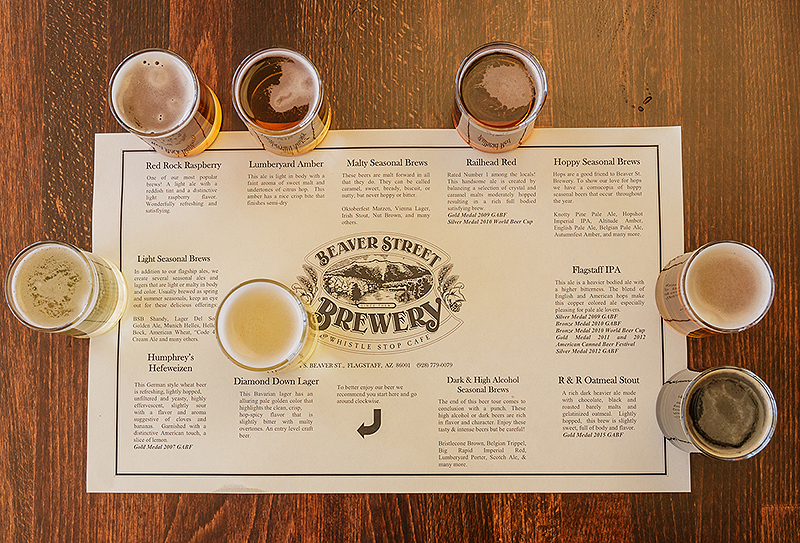 Red Rock Raspberry
One of our most popular
brews! A light ale with a
reddish tint and a distinctive
light raspberry flavor.
Wonderfully refreshing and
satisfiying.
Lumberyard Amber
This ale is light in body with a
faint aroma of sweet malt and
undertones of citrus hop. This
amber has a nice crisp bite that
finishes semi-dry
Malty Seasonal Brews
These beers are malt forward in all
that they do. They can be called
caramel, sweet, bready, biscuit, or
nutty; but never hoppy or bitter.
Oktoberfest Marzen, Vienna Lager,
Irish Stout, Nut Brown, and many
others.
Railhead Red
Rated Number 1 among the locals!
This handsome ale is created by
balancing a selection of crystal and
caramel malts moderately hopped
resulting in a rich full bodied
satisfying brew.
Gold Medal 2009 GABF
Silver Medal 2010 World Beer Cup
Hoppy Seasonal Brews
Hops are a good friend to Beaver St.
Brewery. To show our love for hops
we have a cornucopia of hoppy
seasonal beers that occur throughout
the year.
Knotty Pine Pale Ale, Hopshot
Imperial IPA, Altitude Amber,
English Pale Ale, Belgian Pale Ale,
Autumnfest Amber, and many more.
Light Seasonal Brews
In addition to our flagship ales, we
create several seasonal ales and
lagers that are light or malty in body
and color. Usually brewed as spring
and summer seasonals, keep an eye
out for these delicious offerings.
BSB Shandy, Lager Del Sol
Golden Ale, Munich Helles, Helle
Bock, American Wheat, "Code 4
Cream Ale and many others.
BEAVER STREET
BREWERY
WHISTLE STOP CAFE
S. BEAVER ST., FLAGSTAFF, AZ 86001 (928) 779-0079
Flagstaff IPA
This ale is a heavier bodied ale with
a higher bitterness. The blend of
English and American hops make
this copper colored ale especially
pleasing for pale ale lovers.
Silver Medal 2009 GABF
Bronze Medal 2010 GABF
Bronze Medal 2010 World Beer Cup
Gold Medal 2011 and 2012
American Canned Beer Festival
Silver Medal 2012 GABF
Humphrey's
Hefeweizen
This German style wheat beer
is refreshing, lightly hopped,
unfiltered and yeasty, highly
effervescent, slightly sour
with a flavor and aroma
suggestive of cloves and
bananas. Garnished with a
distinctive American touch, a
slice of lemon.
Gold Medal 2007 GABF
Diamond Down Lager
This Bavarian lager has an
alluring pale golden color that
highlights the clean, crisp,
hop-spicy flavor that is
slightly bitter with malty
overtones. An entry level craft
beer.
To better enjoy our beer we
recommend you start here and go
around clockwise.
Dark & High Alcohol
Seasonal Brews
The end of this beer tour comes to
conclusion with a punch. These
high alcohol or dark beers are rich
in flavor and character. Enjoy these
tasty & intense beers but be careful!
Bristlecone Brown, Belgian Trippel,
Big Rapid Imperial Red,
Lumberyard Porter, Scotch Ale, &
many more.
R & R Oatmeal Stout
A rich dark heavier ale made
with chocolate, black and
roasted barely malts and
gelatinized oatmeal. Lightly
hopped, this brew is slightly
sweet, full of body and flavor.
Gold Medal 2015 GABF